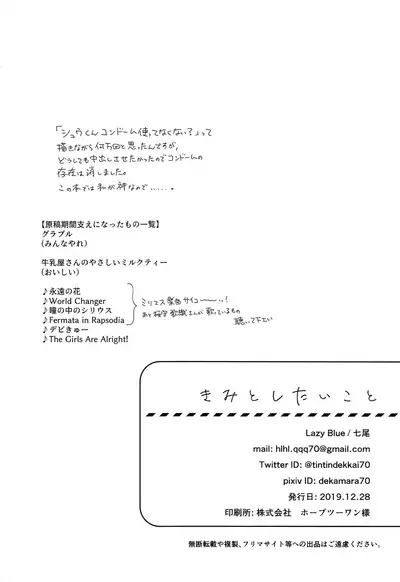 「ショウくんコンドーム使ってなくない？」って
描きながら何万回と思ったんですが、
どうしても中出しさせたかったのでコンドームの
存在は消しました。
この本では私が神なので……。
【原稿期間支えになったもの一覧】
グラブル
(みんなやれ)
牛乳屋さんのやさしいミルクティー
(おいしい)
♪永遠の花
♪World Changer
♪瞳の中のシリウス
♪Fermata in Rapsodia
♪デビきゅー
♪The Girls Are Alright!
ミリマス楽曲サイコー〜〜ッ!
あと桜守歌織さんが歌っているもの
聴いて下さい
きみとしたいこと
Lazy Blue / 七尾
mail: hlhl.qqq70@gmail.com
Twitter ID: @tintindekkai70
pixiv ID: dekamara70
発行日: 2019.12.28
印刷所: 株式会社　ホープツーワン様
無断転載や複製、フリマサイト等への出品はご遠慮ください。